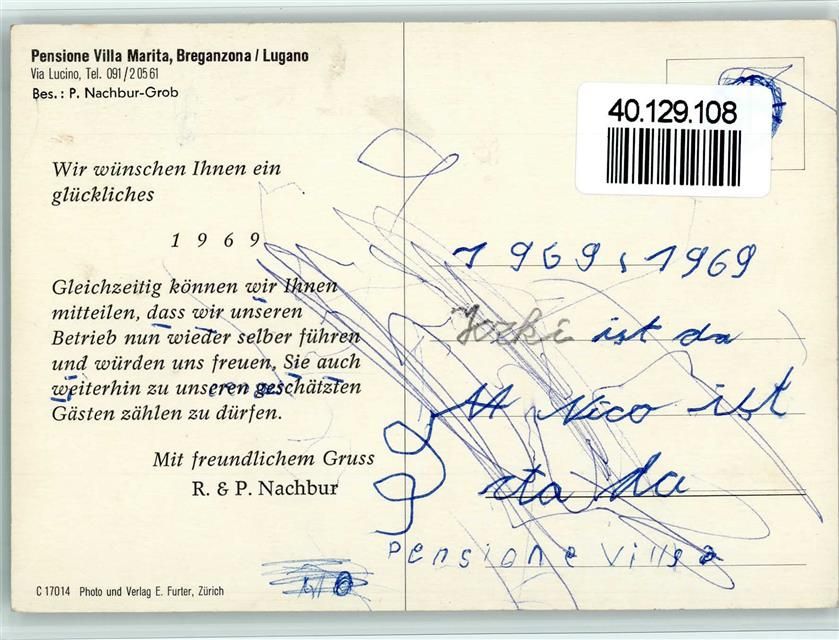 Pensione Villa Marita, Breganzona / Lugano
Via Lucino, Tel. 091/2 05 61
Bes. : P. Nachbur-Grob
Wir wünschen Ihnen ein
glückliches
1 9 6 9
Gleichzeitig können wir Ihnen
mitteilen, dass wir unseren
Betrieb nun wieder selber führen
und würden uns freuen, Sie auch
weiterhin zu unseren geschätzten
Gästen zählen zu dürfen.
Mit freundlichem Gruss
R. & P. Nachbur
C 17014 Photo und Verlag E. Furter, Zürich
40.129.108
1969, 1969
ist da
Nico ist
da
Pensione Villa